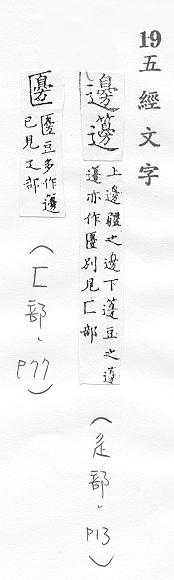 19五經文字
邊籩
上邊疆之邊下籩豆之籩
籩亦作別見匚部
(辵部、P13)
豆多作籩
已見辵部
(匚部、P77)